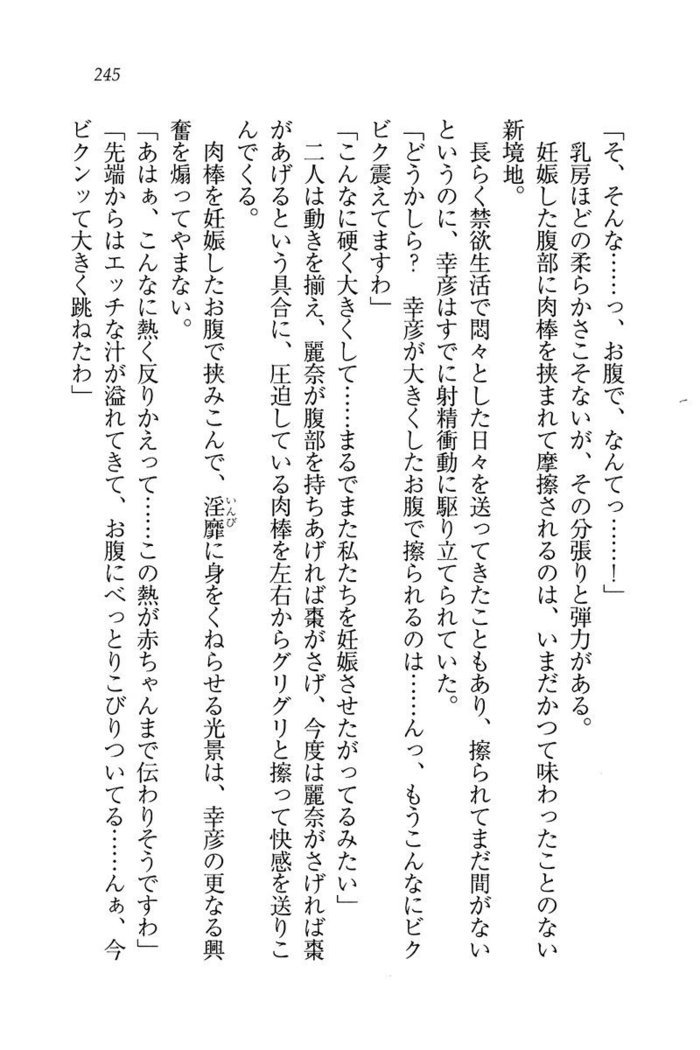 245
「そ、そんな……っ、お腹で、なんてっ……！」
乳房ほどの柔らかさこそないが、その分張りと弾力がある。
妊娠した腹部に肉棒を挟まれて摩擦されるのは、いまだかつて味わったことのない
新境地。
長らく禁欲生活で悶々とした日々を送ってきたこともあり、擦られてまだ間がない
というのに、幸彦はすでに射精衝動に駆り立てられていた。
「どうかしら？　幸彦が大きくしたお腹で擦られるのは……んっ、もうこんなにビク
ビク震えてますわ」
「こんなに硬く大きくして……まるでまた私たちを妊娠させたがってるみたい」
二人は動きを揃え、麗奈が腹部を持ちあげれば棗がさげ、今度は麗奈がさげれば棗
があげるという具合に、圧迫している肉棒を左右からグリグリと擦って快感を送りこ
んでくる。
肉棒を妊娠したお腹で挟みこんで、淫靡いんびに身をくねらせる光景は、幸彦の更なる興
奮を煽ってやまない。
「あはぁ、こんなに熱く反りかえって……この熱が赤ちゃんまで伝わりそうですわ」
「先端からはエッチな汁が溢れてきて、お腹にべっとりこびりついてる……んぁ、今
ビクンッて大きく跳ねたわ」